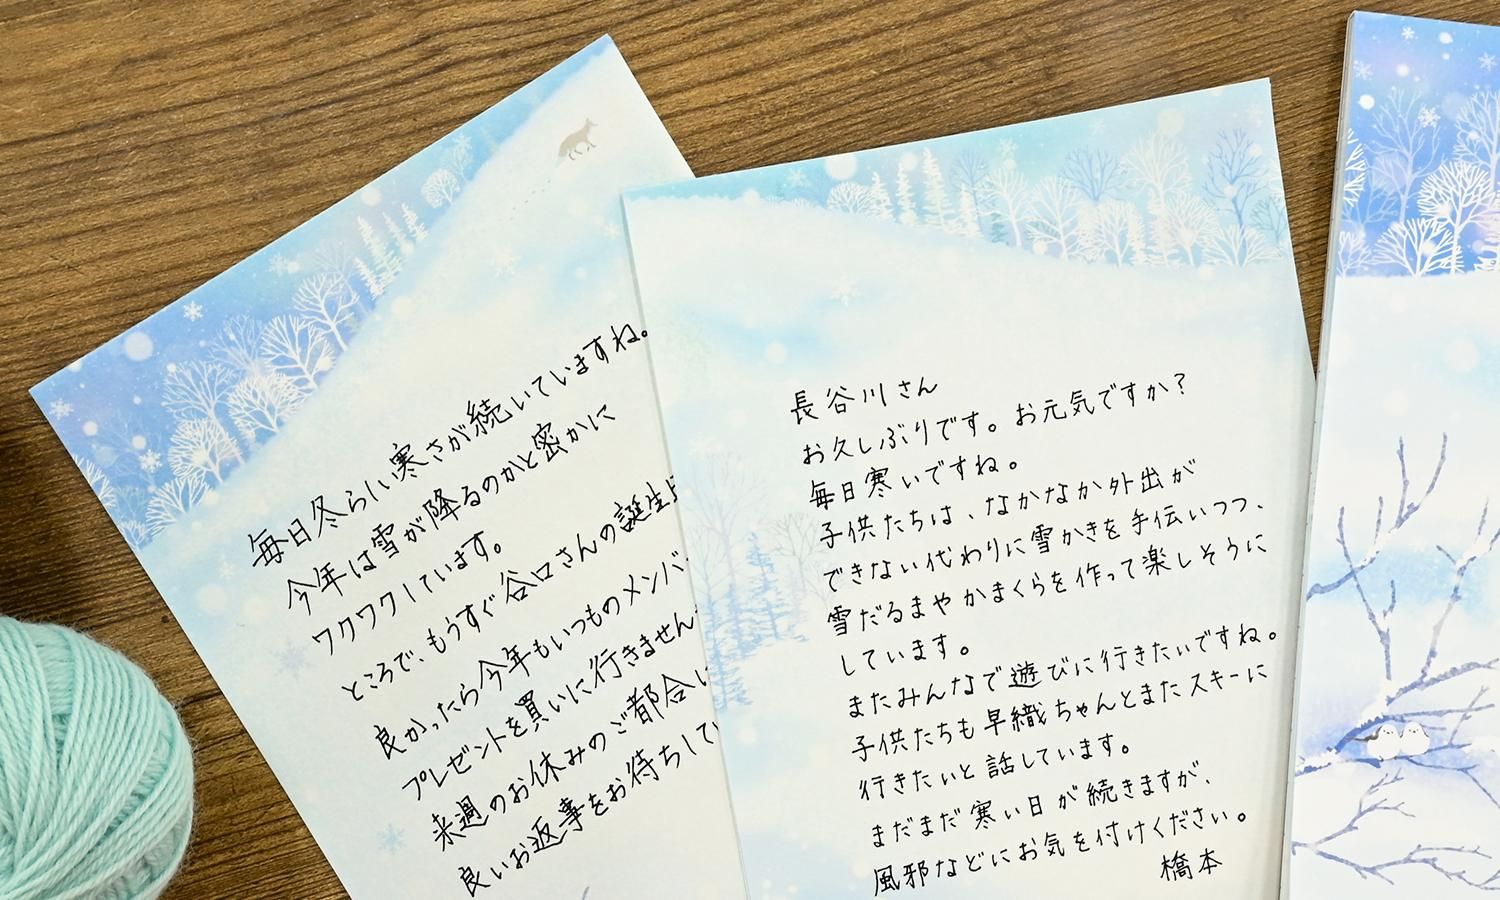 毎日冬らしい寒さが続いていますね。
今年は雪が降るのかと密かに
ワクワクしています。
ところで、もうすぐ谷口さんの誕生日
良かったら今年もいつものメンバ
プレゼントを買いに行きません
来週のお休みのご都合
良いお返事をお待ちして
長谷川さん
お久しぶりです。お元気ですか？
毎日寒いですね。
子供たちは、なかなか外出が
できない代わりに雪かきを手伝いつつ、
雪だるまやかまくらを作って楽しそうに
しています。
またみんなで遊びに行きたいですね。
子供たちも早織ちゃんとまたスキーに
行きたいと話しています。
まだまだ寒い日が続きますが、
風邪などにお気を付けください。
橋本